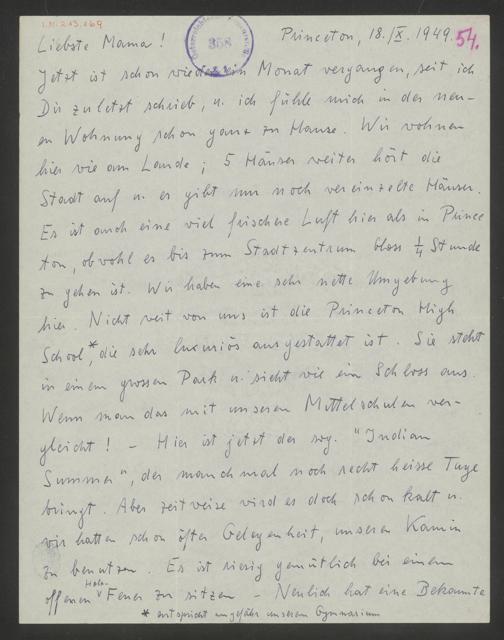 I.N. 213.069
Liebste Mama!
358
Princeton, 18./IX. 1949.
54.
Jetzt ist schon wieder ein Monat vergangen, seit ich
Dir zuletzt schrieb, u. ich fühle mich in der neu-
en Wohnung schon ganz zu Hause. Wir wohnen
hier wie am Lande; 5 Häuser weiter hört die
Stadt auf u. es gibt nur noch vereinzelte Häuser.
Es ist auch eine viel frischere Luft hier als in Prince
ton, obwohl es bis zum Stadtzentrum bloss 1/4 Stunde
zu gehen ist. Wir haben eine sehr nette Umgebung
hier. Nicht weit von uns ist die Princeton High
School*, die sehr luxuriös ausgestattet ist. Sie steht
in einem grossen Park u. sieht wie ein Schloss aus.
Wenn man das mit unseren Mittelschulen ver-
gleicht! – Hier ist jetzt der sog. "Indian
Summer", der manchmal noch recht heisse Tage
bringt. Aber zeitweise wird es doch schon kalt u.
wir hatten schon öfter Gelegenheit, unseren Kamin
zu benutzen. Es ist riesig gemütlich bei einem
offenen Holz-Feuer zu sitzen – Neulich hat eine Bekannte
* entspricht ungefähr unserem Gymnasium